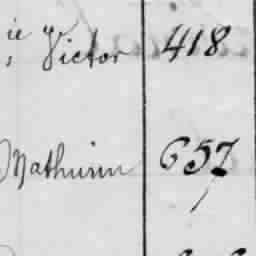 ie
Victor 418
Mathurin 657